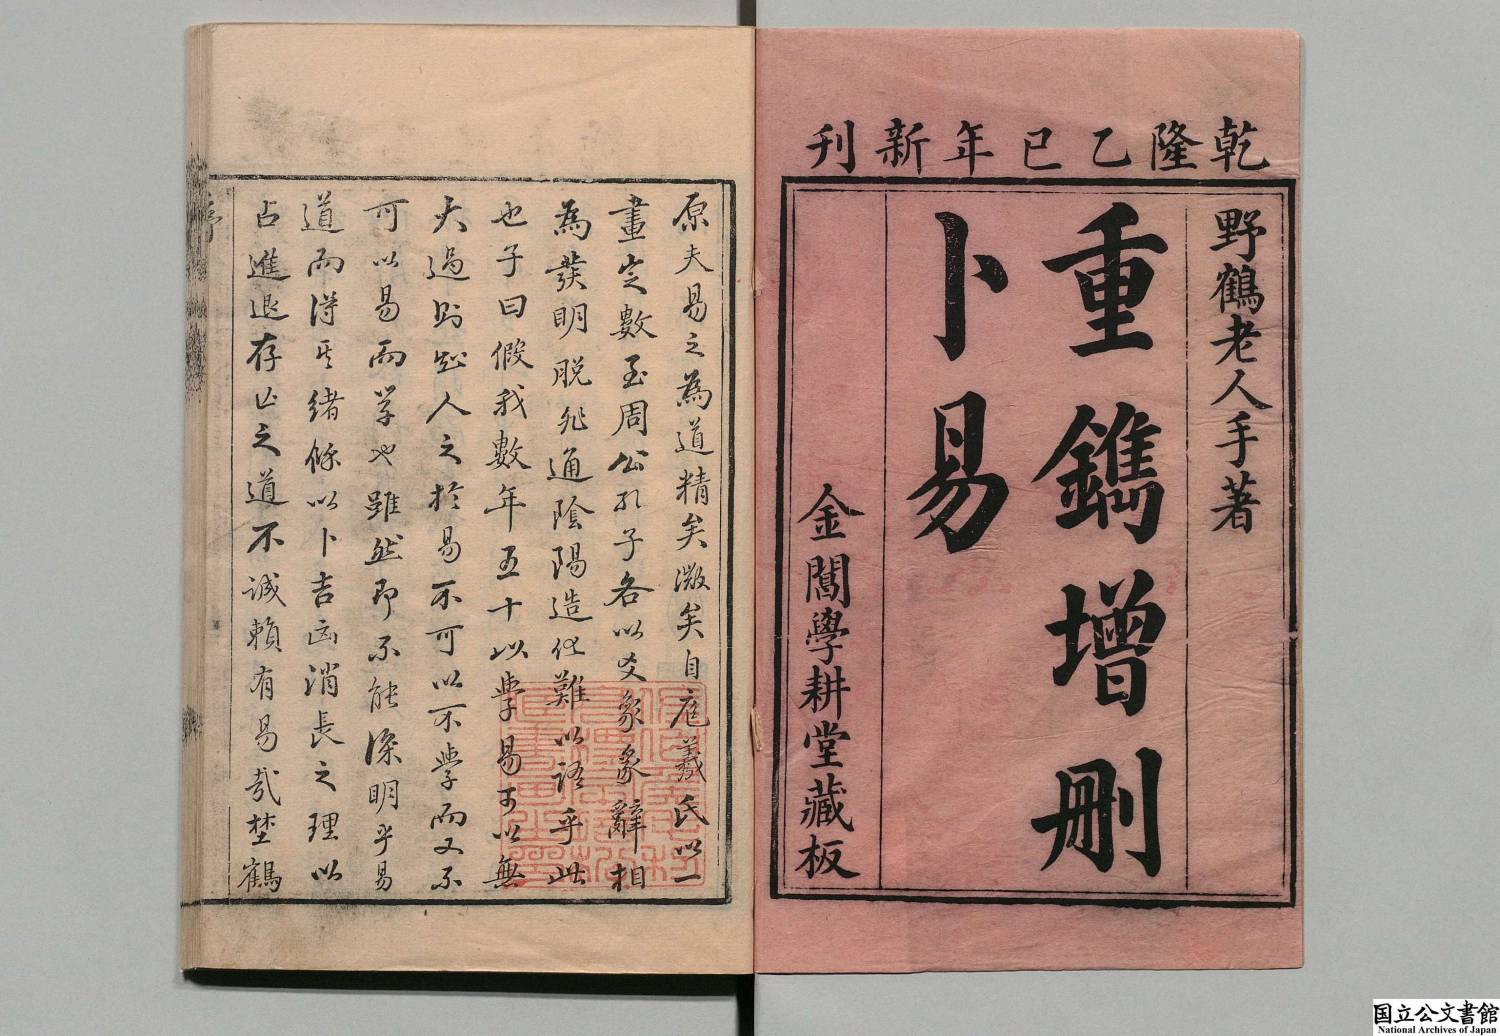 乾隆乙巳年新刊
野鶴老人手著
重鐫增刪
卜易
金閶學耕堂藏板
原夫易之為道精矣微矣自庖羲氏以一
畫定數至周公孔子各以爻象彖辭相
為發明脫非通陰陽造化難以語乎此
也子曰假我數年五十以學易可以無
大過則知人之於易不可以不學而又不
可以易而学也雖然即不能深明乎易
道而得其緒餘以卜吉凶消長之理以
占進退存亡之道不誠賴有易哉埜鶴
序
国立公文書館
National Archives of Japan